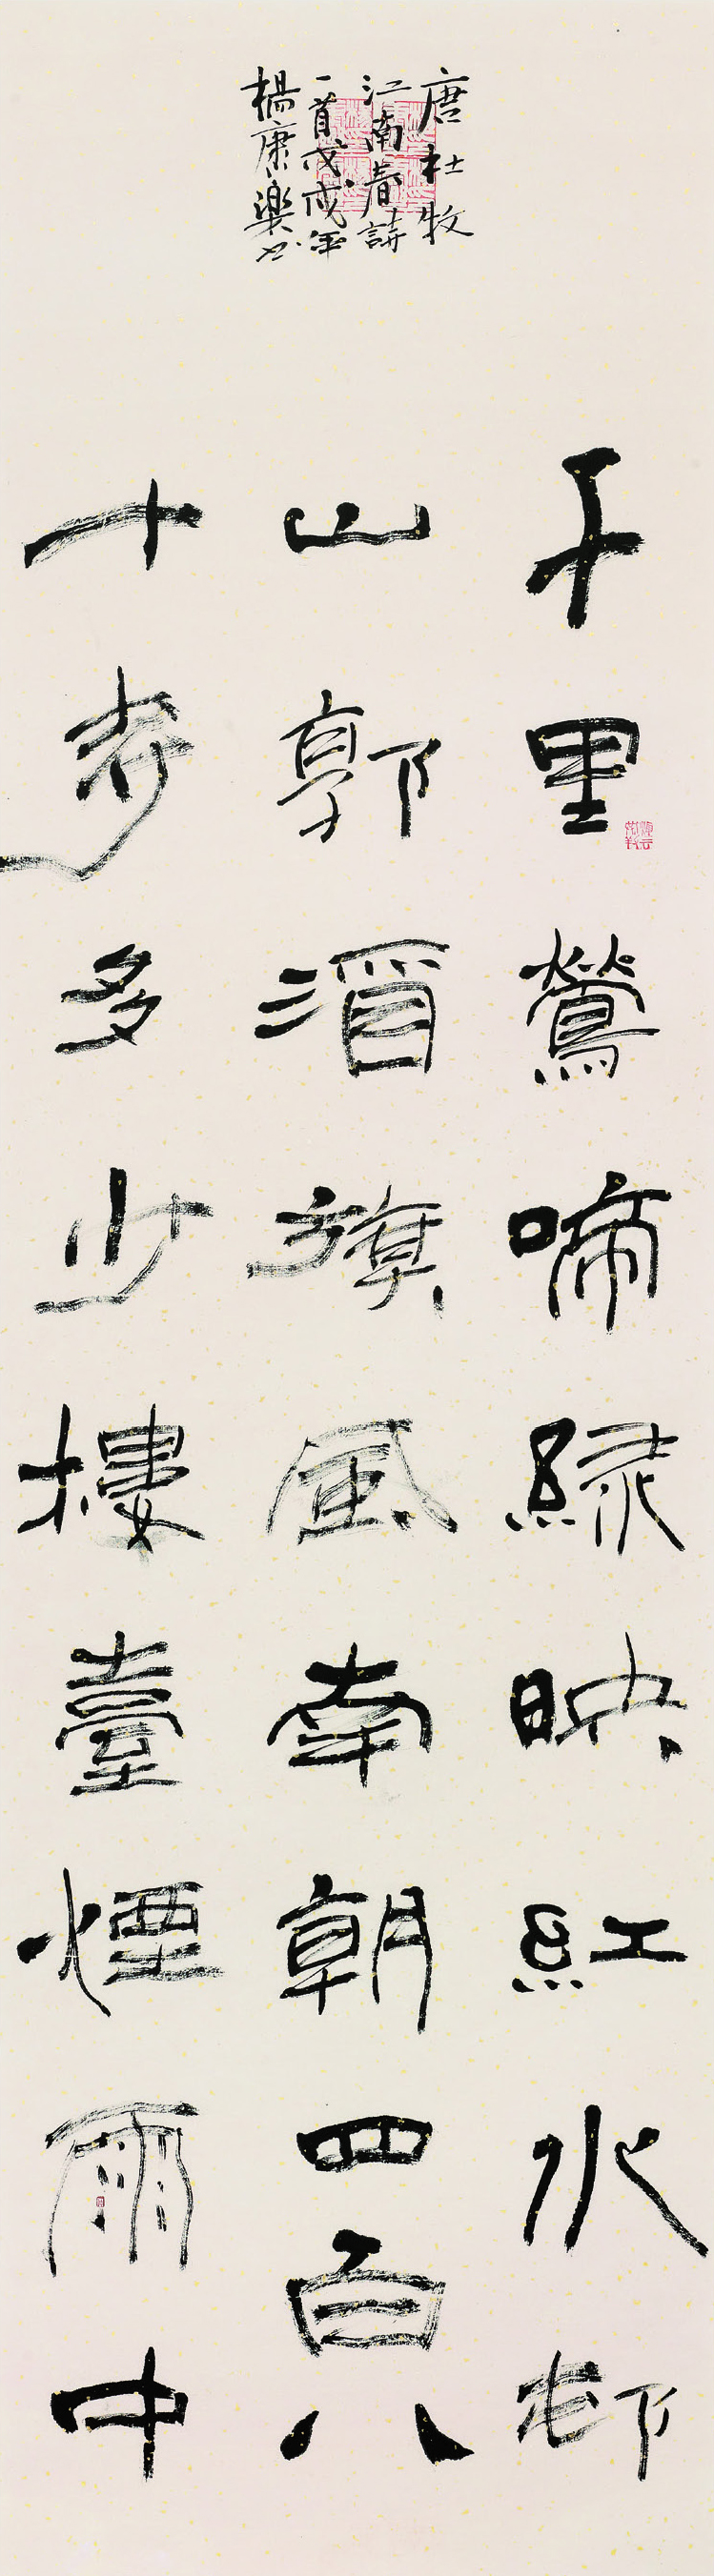 千里鶯啼緑映紅水邨
山郭酒旗風南朝四百八
十寺多少樓臺煙雨中
唐杜牧
江南春詩
一首戊戌年
楊康樂书